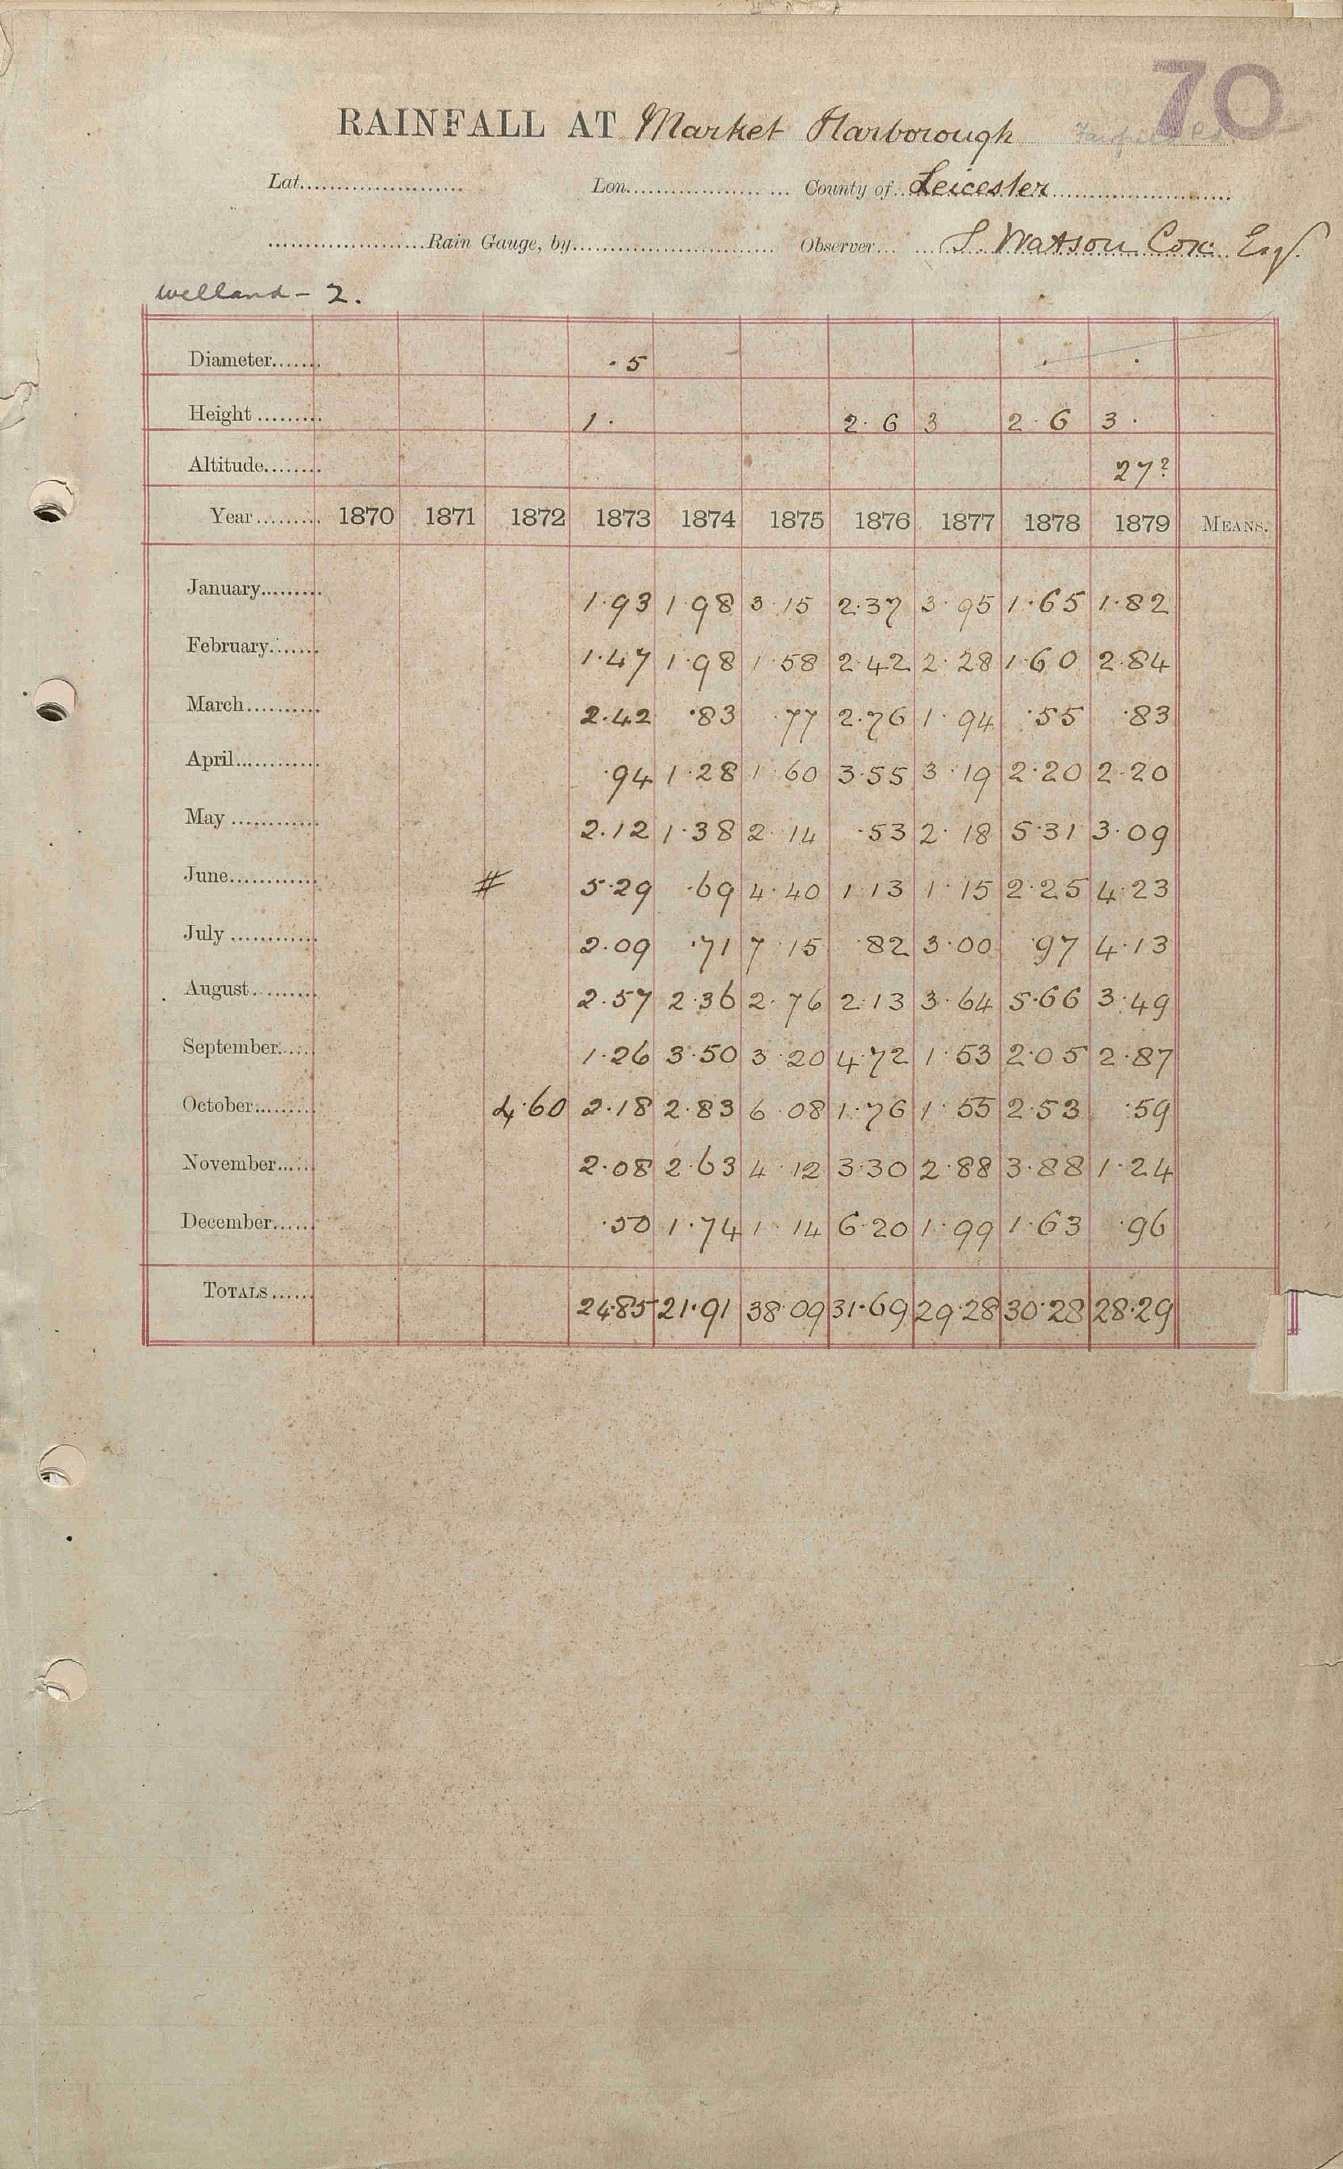 70
RAINFALL AT Market Harborough
Lat. Lon. County of Leicester
Rain Gauge, by Observer S. Watson Cox Esq.
Welland - 2.
Diameter ·5
Height 1· 2·6 3 2·6 3·
Altitude 27?
Year 1870 1871 1872 1873 1874 1875 1876 1877 1878 1879 MEANS.
January 1·93 1·98 3·15 2·37 3·95 1·65 1·82
February 1·47 1·98 1·58 2·42 2·28 1·60 2·84
March 2·42 ·83 ·77 2·76 1·94 ·55 ·83
April ·94 1·28 1·60 3·55 3·19 2·20 2·20
May 2·12 1·38 2·14 ·53 2·18 5·31 3·09
June # 5·29 ·69 4·40 1·13 1·15 2·25 4·23
July 2·09 ·71 7·15 ·82 3·00 ·97 4·13
August 2·57 2·36 2·76 2·13 3·64 5·66 3·49
September 1·26 3·50 3·20 4·72 1·53 2·05 2·87
October 4·60 2·18 2·83 6·08 1·76 1·55 2·53 ·59
November 2·08 2·63 4·12 3·30 2·88 3·88 1·24
December ·50 1·74 1·14 6·20 1·99 1·63 ·96
TOTALS 24·85 21·91 38·09 31·69 29·28 30·28 28·29